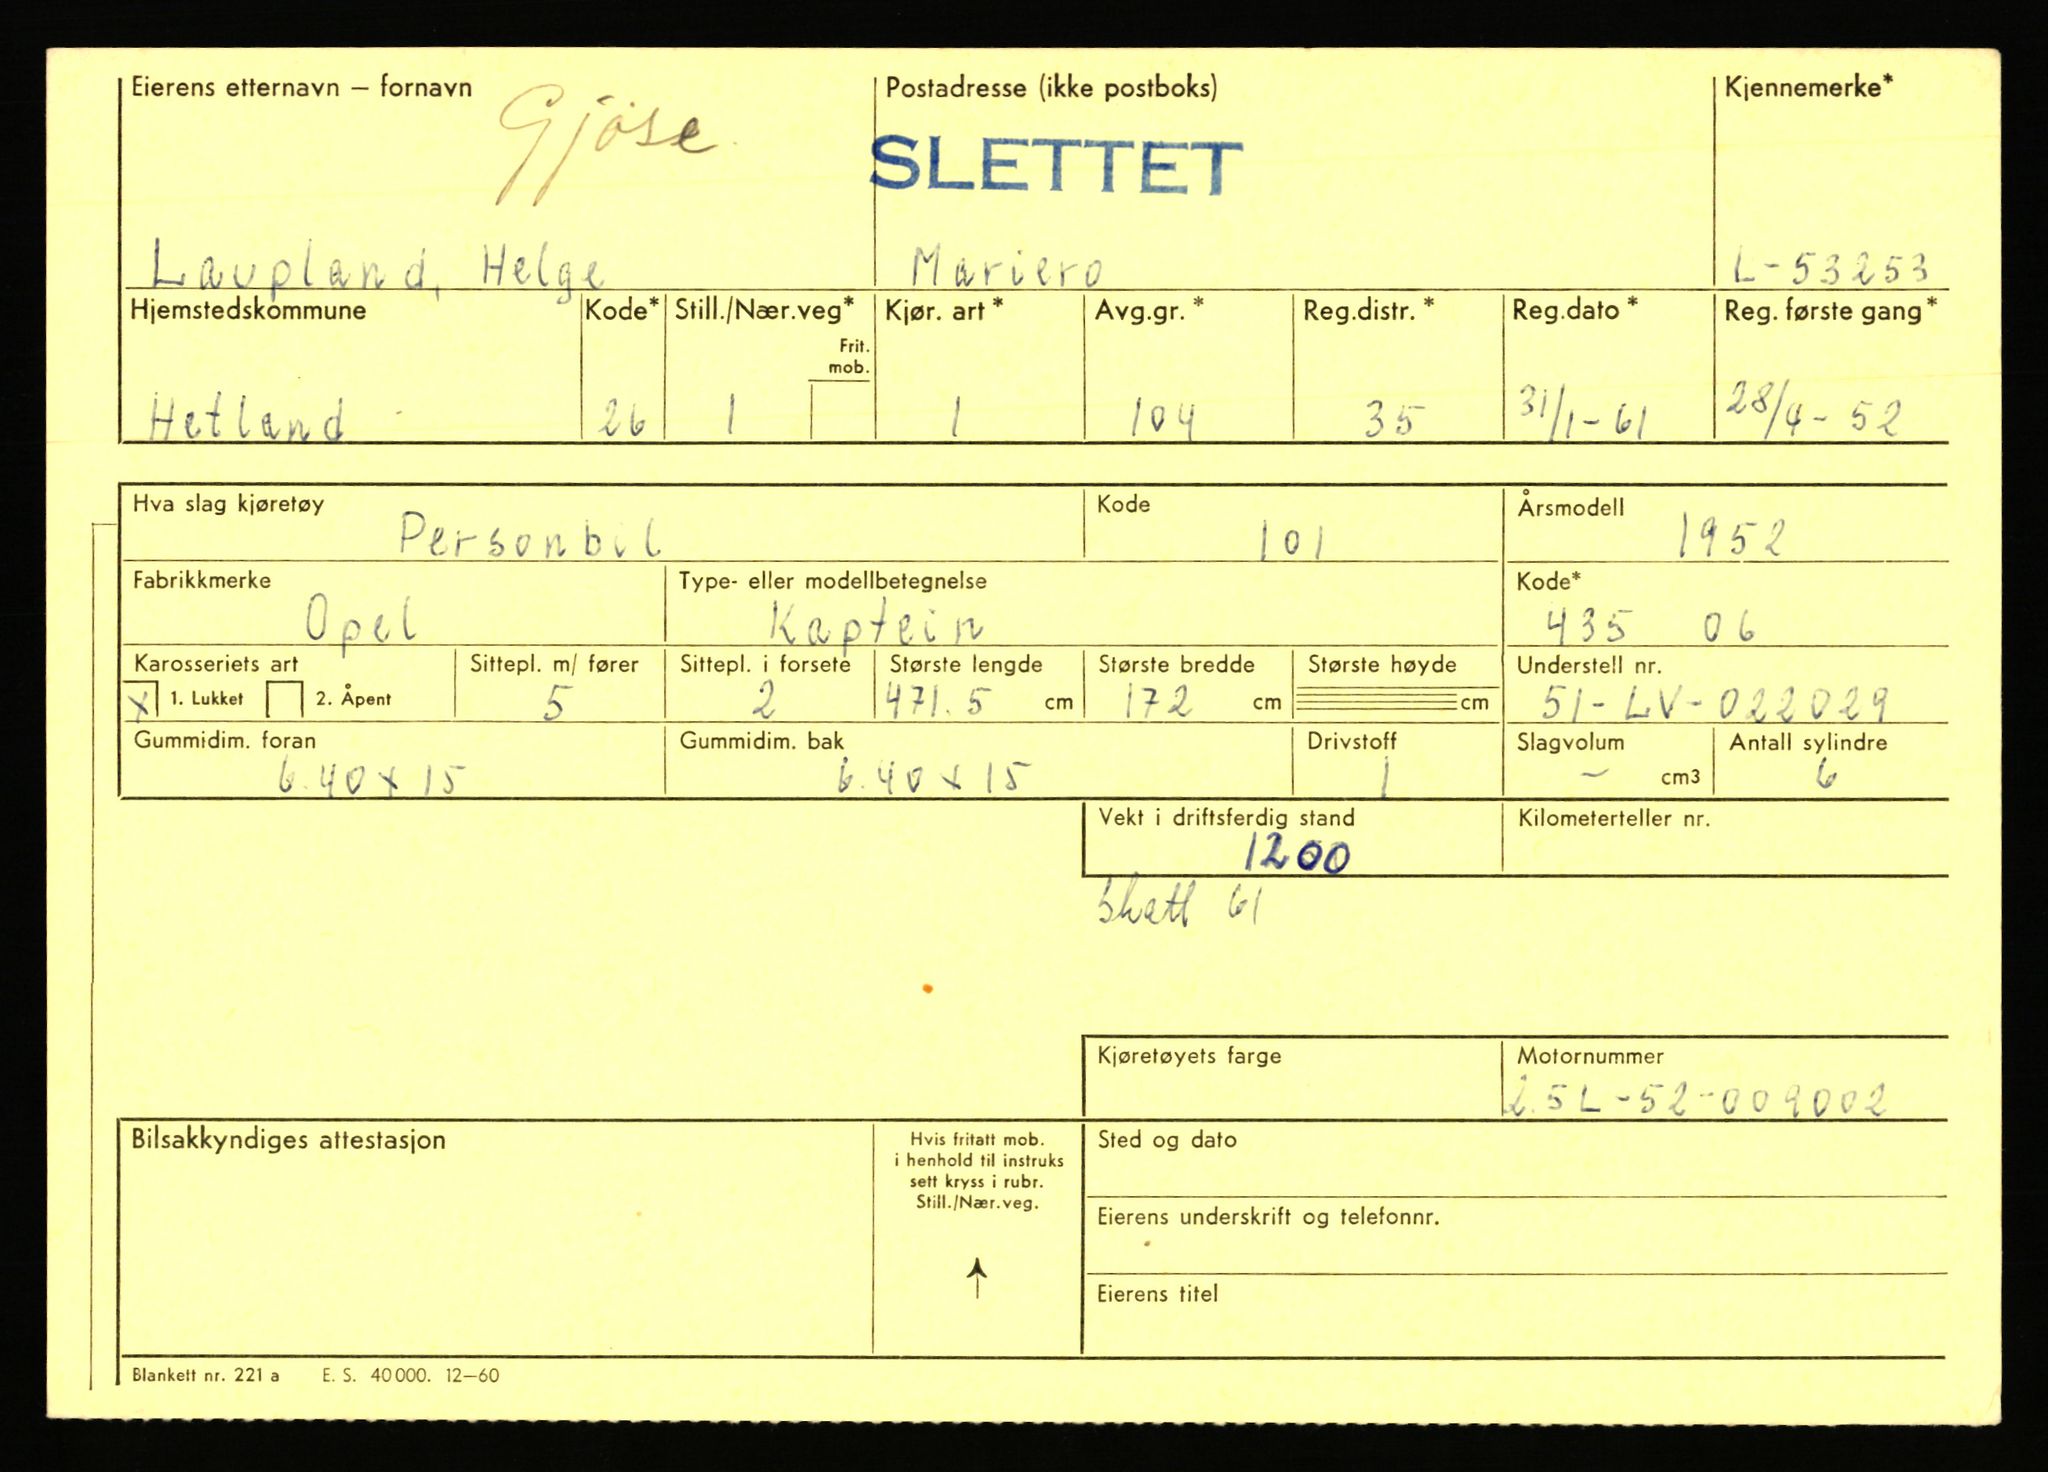 Eierens etternavn – fornavn Postadresse (ikke postboks) Kjennemerke*
Gjöse
SLETTET
Laupland, Helge Mariero L-53253
Hjemstedskommune Kode* Still./Nær.veg* Kjør. art* Avg.gr.* Reg.distr.* Reg.dato* Reg. første gang*
Frit.
mob.
Hetland 26 1 1 104 35 31/1-61 28/4-52
Hva slag kjøretøy Kode Årsmodell
Personbil 101 1952
Fabrikkmerke Type- eller modellbetegnelse Kode*
Opel Kaptein 435 06
Karosseriets art Sittepl. m/ fører Sittepl. i forsete Største lengde Største bredde Største høyde Understell nr.
x 1. Lukket 2. Åpent 5 2 471.5 cm 172 cm cm 51-LV-022029
Gummidim. foran Gummidim. bak Drivstoff Slagvolum Antall sylindre
6.40x15 6.40x15 1 – cm3 6
Vekt i driftsferdig stand Kilometerteller nr.
1200
Skatt 61
Kjøretøyets farge Motornummer
2.5L-52-009002
Bilsakkyndiges attestasjon Hvis fritatt mob. Sted og dato
i henhold til instruks
sett kryss i rubr.
Still./Nær.veg.
Eierens underskrift og telefonnr.
Eierens titel
Blankett nr. 221 a E. S. 40000. 12–60